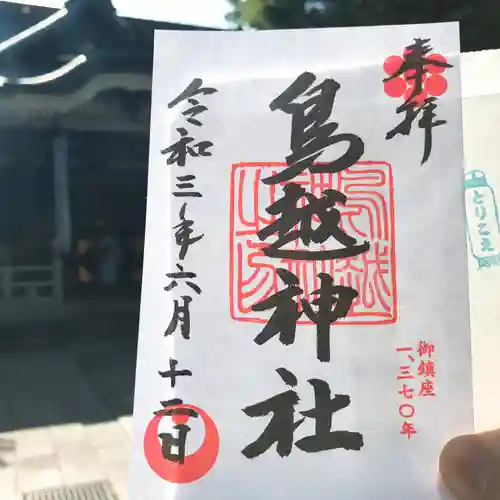 奉拝
鳥越神社
令和三年六月十二日
御鎮座
一、三七〇年
とりこえ